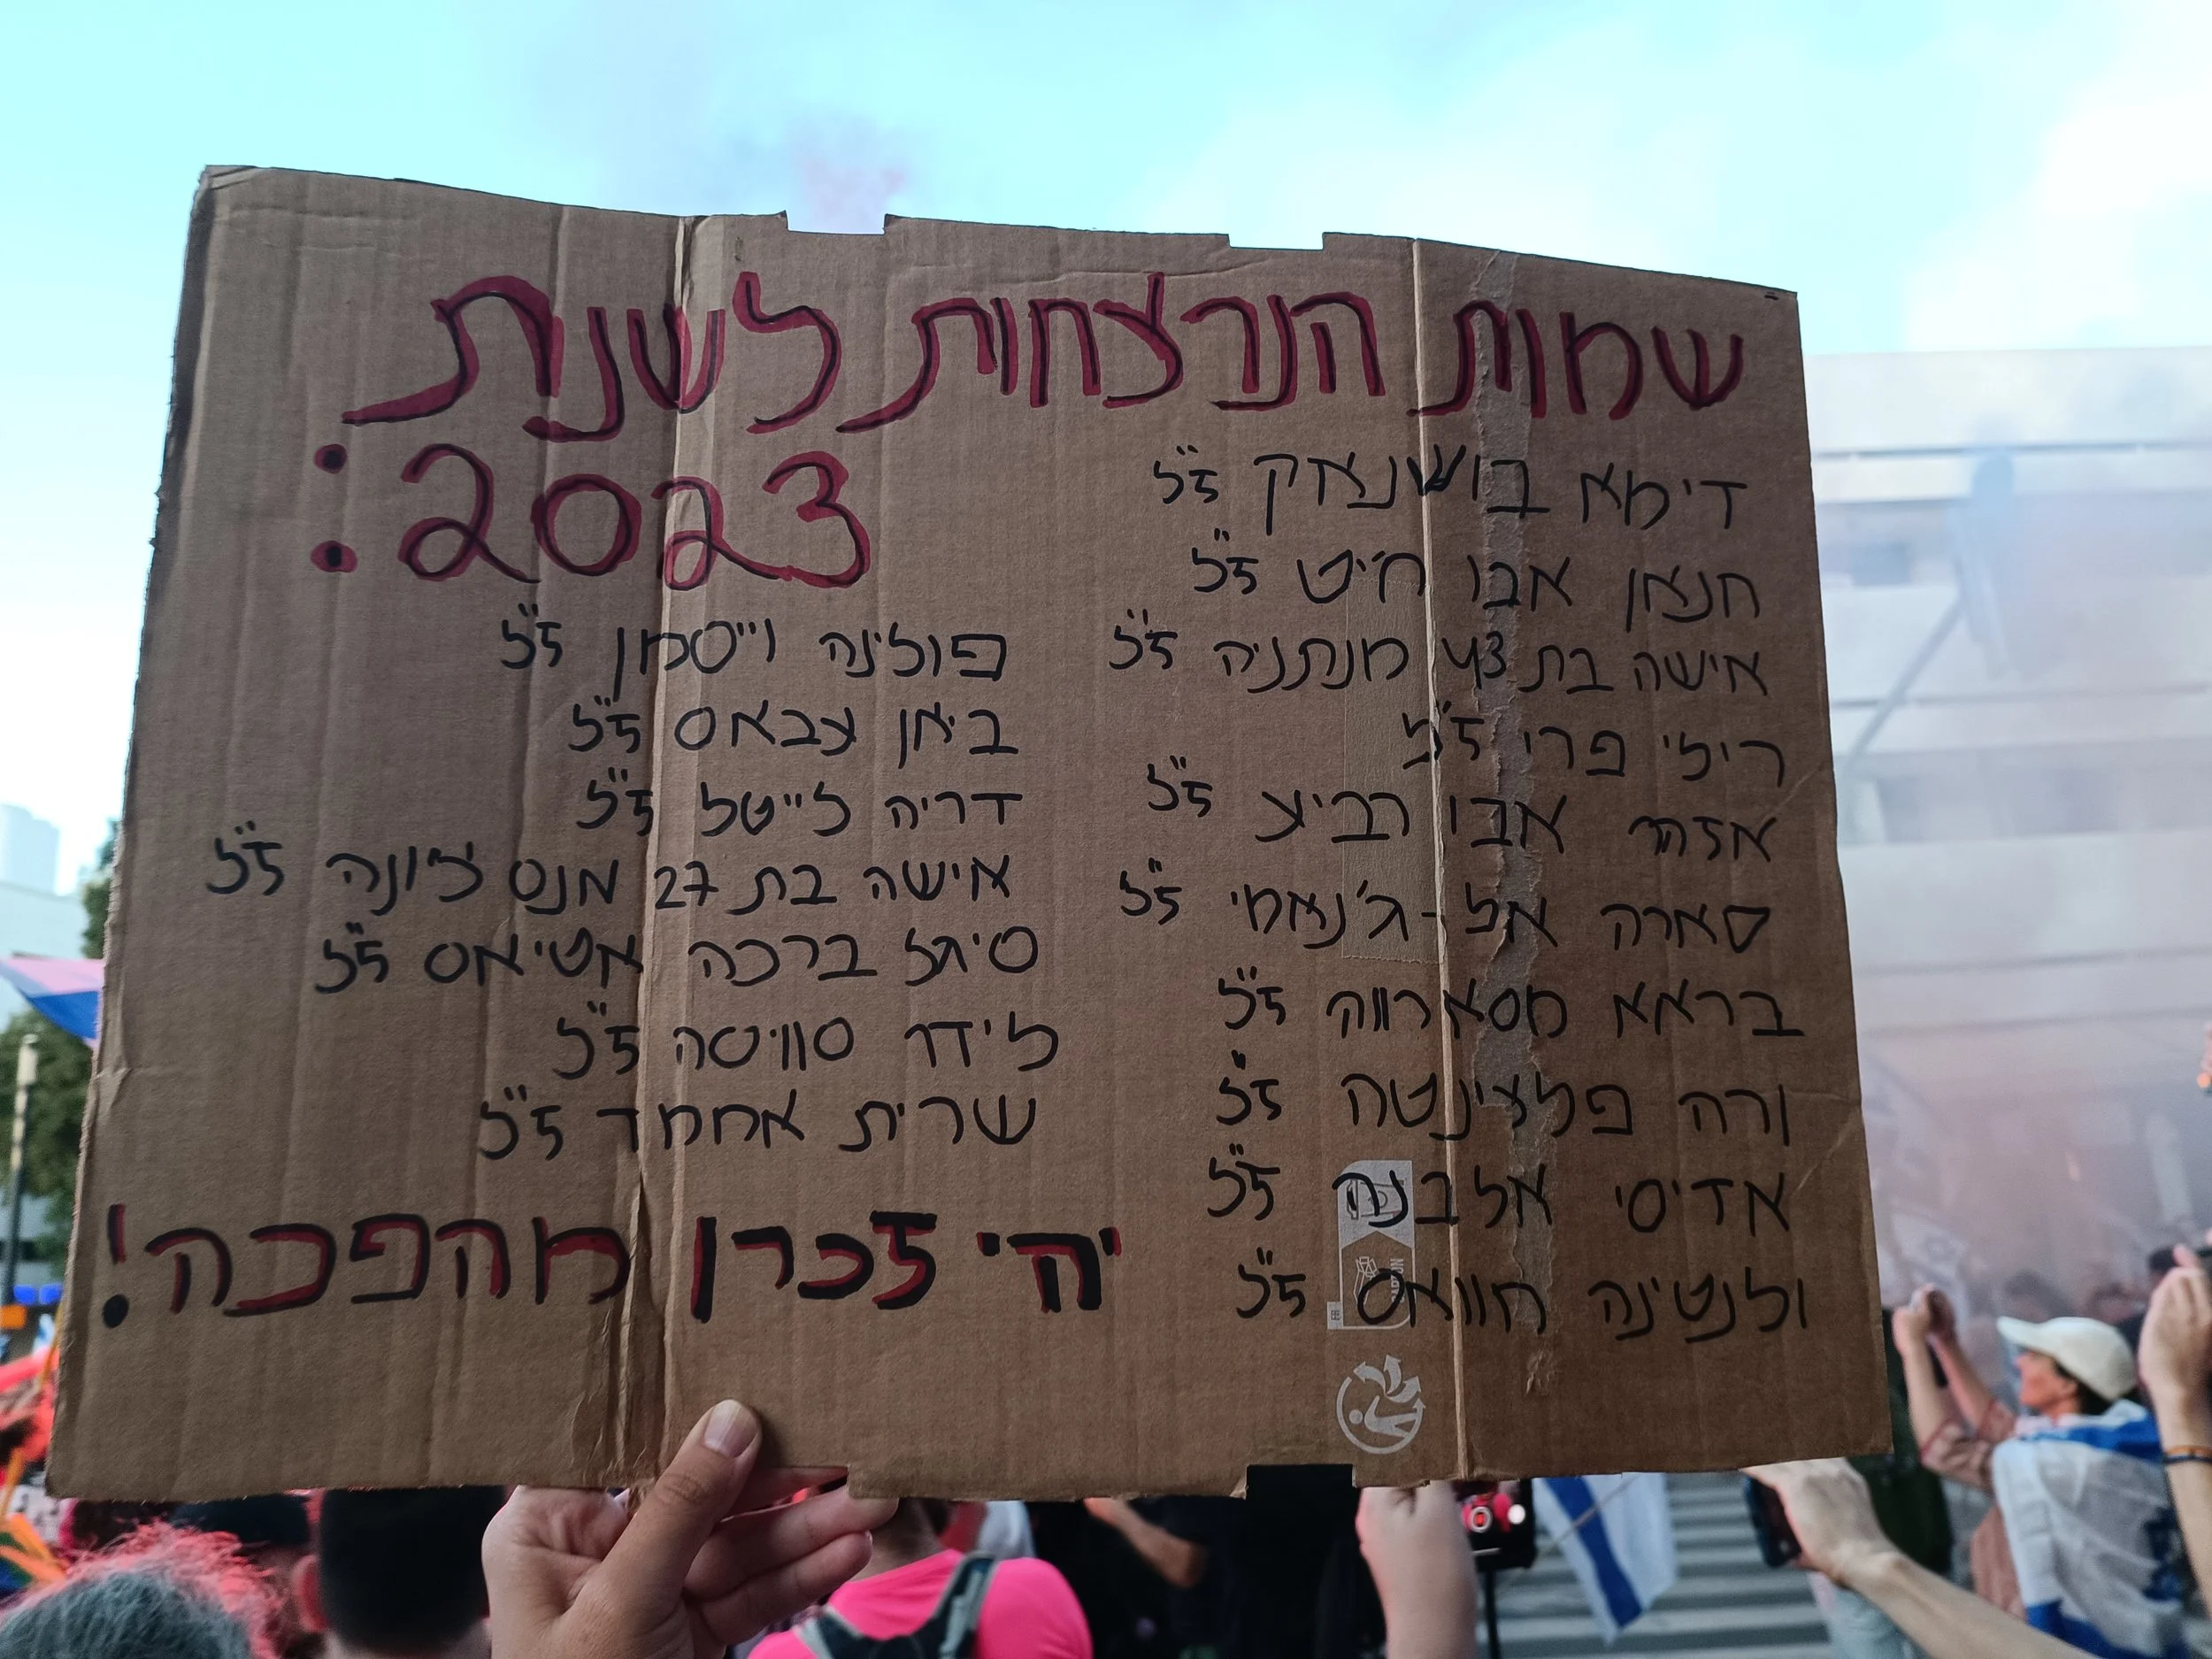 שמות הנרצחות לשנת
2023:
דימא בושנאק ז"ל
חנאן אבו ח'יט ז"ל
אישה בת 43 מנתניה ז"ל
רילי פרי ז"ל
אזהר אבו רביע ז"ל
סארה אל-ג'נאמי ז"ל
בראא מסארווה ז"ל
ורה פלצ'ינטה ז"ל
אדיסי אלבנה ז"ל
ולנטינה חוואס ז"ל
פולינה וייסמן ז"ל
ביאן עבאס ז"ל
דריה לייטל ז"ל
אישה בת 27 מנס ציונה ז"ל
סיגל ברכה אטיאס ז"ל
לידר סוויסה ז"ל
שרית אחמד ז"ל
יהי זכרן מהפכה!